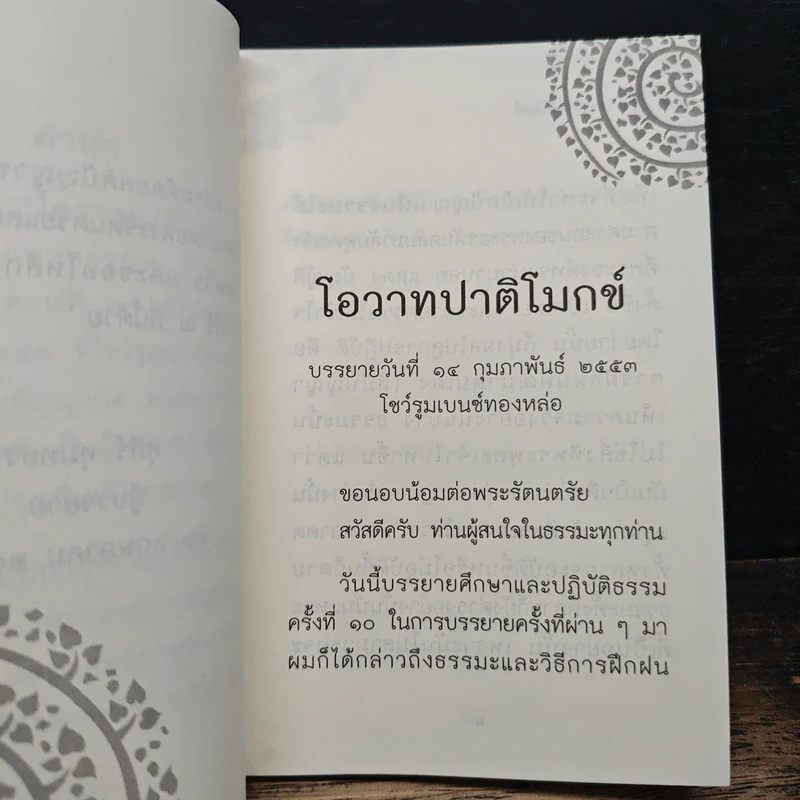 โอวาทปาติโมกข์
บรรยายวันที่ ๑๔ กุมภาพันธ์ ๒๕๕๓
โชว์รูมเบนซ์ทองหล่อ
ขอนอบน้อมต่อพระรัตนตรัย
สวัสดีครับ ท่านผู้สนใจในธรรมะทุกท่าน
วันนี้บรรยายศึกษาและปฏิบัติธรรม
ครั้งที่ ๑๐ ในการบรรยายครั้งที่ผ่าน ๆ มา
ผมก็ได้กล่าวถึงธรรมะและวิธีการฝึกฝน